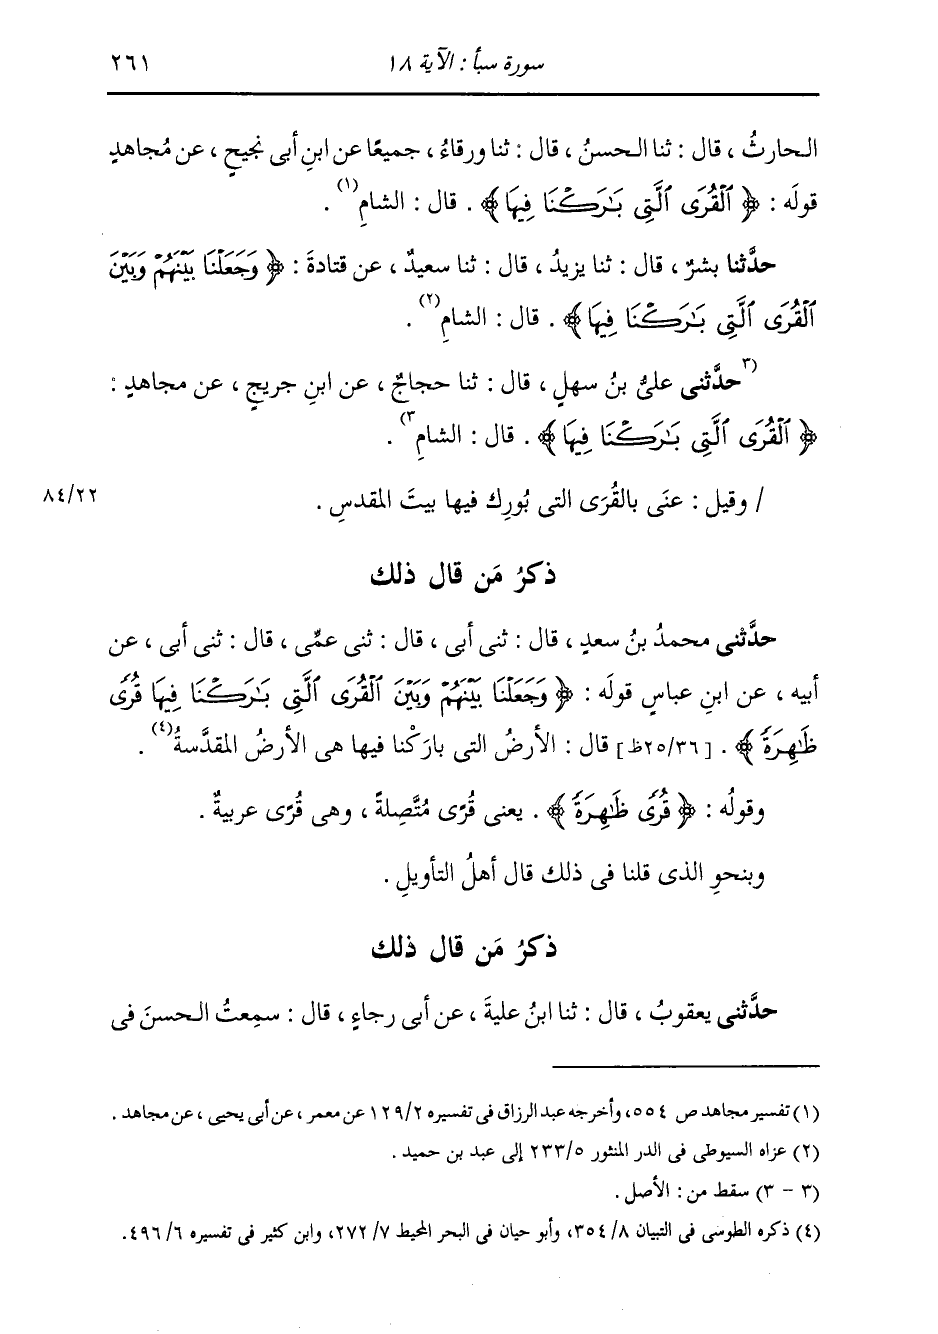 سورة سبأ : الآية ١٨ ٢٦١
الحارثُ ، قال : ثنا الحسنُ ، قال : ثنا ورقاءُ ، جميعًا عن ابنِ أبى نجيحٍ ، عن مُجاهدٍ
قولَه : ﴿ ٱلْقُرَى ٱلَّتِى بَٰرَكْنَا فِيهَا ﴾ . قال : الشامِ(١) .
حدَّثنا بشرٌ ، قال : ثنا يزيدُ ، قال : ثنا سعيدٌ ، عن قتادةَ : ﴿ وَجَعَلْنَا بَيْنَهُمْ وَبَيْنَ
ٱلْقُرَى ٱلَّتِى بَٰرَكْنَا فِيهَا ﴾ . قال : الشامِ(٢) .
(٣حدَّثنى علىُّ بنُ سهلٍ ، قال : ثنا حجاجٌ ، عن ابنِ جريجٍ ، عن مجاهدٍ :
﴿ ٱلْقُرَى ٱلَّتِى بَٰرَكْنَا فِيهَا ﴾ . قال : الشامِ٣) .
/ وقيل : عنَى بالقُرَى التى بُورِك فيها بيتَ المقدسِ . ٨٤/٢٢
ذكرُ مَن قال ذلك
حدَّثنى محمدُ بنُ سعدٍ ، قال : ثنى أبى ، قال : ثنى عمِّى ، قال : ثنى أبى ، عن
أبيه ، عن ابنِ عباسٍ قولَه : ﴿ وَجَعَلْنَا بَيْنَهُمْ وَبَيْنَ ٱلْقُرَى ٱلَّتِى بَٰرَكْنَا فِيهَا قُرًى
ظَٰهِرَةً ﴾ . [٢٥/٣٦ظ] قال : الأرضُ التى بارَكْنا فيها هى الأرضُ المقدَّسةُ(٤) .
وقولُه : ﴿ قُرًى ظَٰهِرَةً ﴾ . يعنى قُرًى مُتَّصِلةً ، وهى قُرًى عربيةٌ .
وبنحوِ الذى قلنا فى ذلك قال أهلُ التأويلِ .
ذكرُ مَن قال ذلك
حدَّثنى يعقوبُ ، قال : ثنا ابنُ عليةَ ، عن أبى رجاءٍ ، قال : سمِعتُ الحسنَ فى
(١) تفسير مجاهد ص ٥٥٤، وأخرجه عبد الرزاق فى تفسيره ١٢٩/٢ عن معمر ، عن أبى يحيى ، عن مجاهد .
(٢) عزاه السيوطى فى الدر المنثور ٢٣٣/٥ إلى عبد بن حميد .
(٣ - ٣) سقط من : الأصل .
(٤) ذكره الطوسى فى التبيان ٣٥٤/٨، وأبو حيان فى البحر المحيط ٢٧٢/٧، وابن كثير فى تفسيره ٤٩٦/٦.